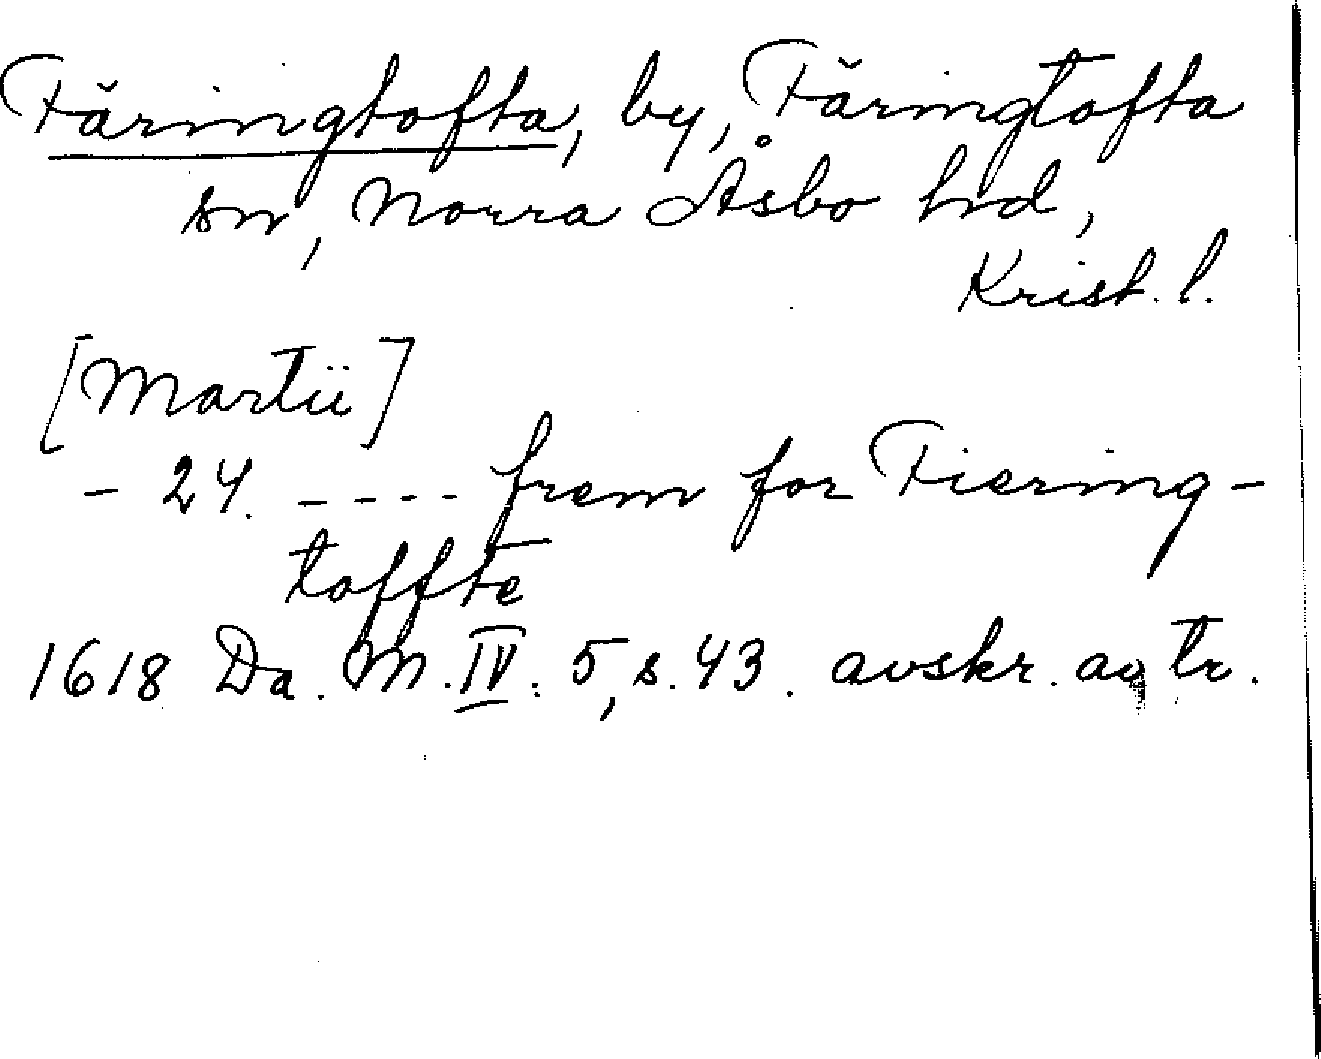 Färingtofta, by, Färingtofta
sn, Norra Åsbo hd,
Krist. l.
[Martii]
- 24. ---- frem for Fiering-
toffte
1618 Da. M. IV. 5, s. 43. avskr. av tr.